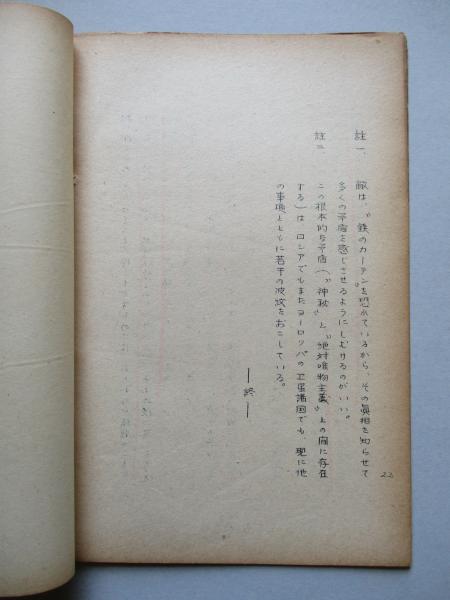 註一、敵は、〝鉄のカーテン〟を恐れているから、その眞相を知らせて
多くの矛盾を感じさせるようにしむけるのがいい。
註二、この根本的な矛盾(〝神秘〟と〝絶対唯物主義〟との間に存在
する)は ロシアでもまたヨーロッパの卫星諸国でも、現に他
の事項とともに若干の波紋をおこしている。
—終—
22